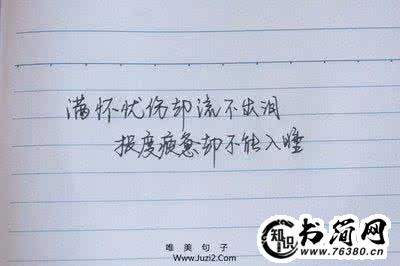 满怀忧伤却流不出泪
极度疲惫却不能入睡
唯美句子
www.Juzi2.Com
知识
书简网
www.76380.cn